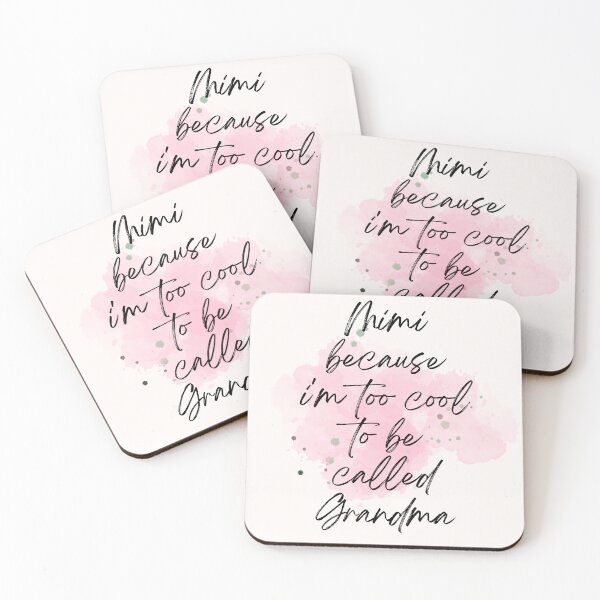 Mimi
because
i'm too cool
Mimi
because
i'm too cool
to be
called
Mimi
because
i'm too cool
to be
calle
Grand
Mimi
because
i'm too cool
to be
called
Grandma